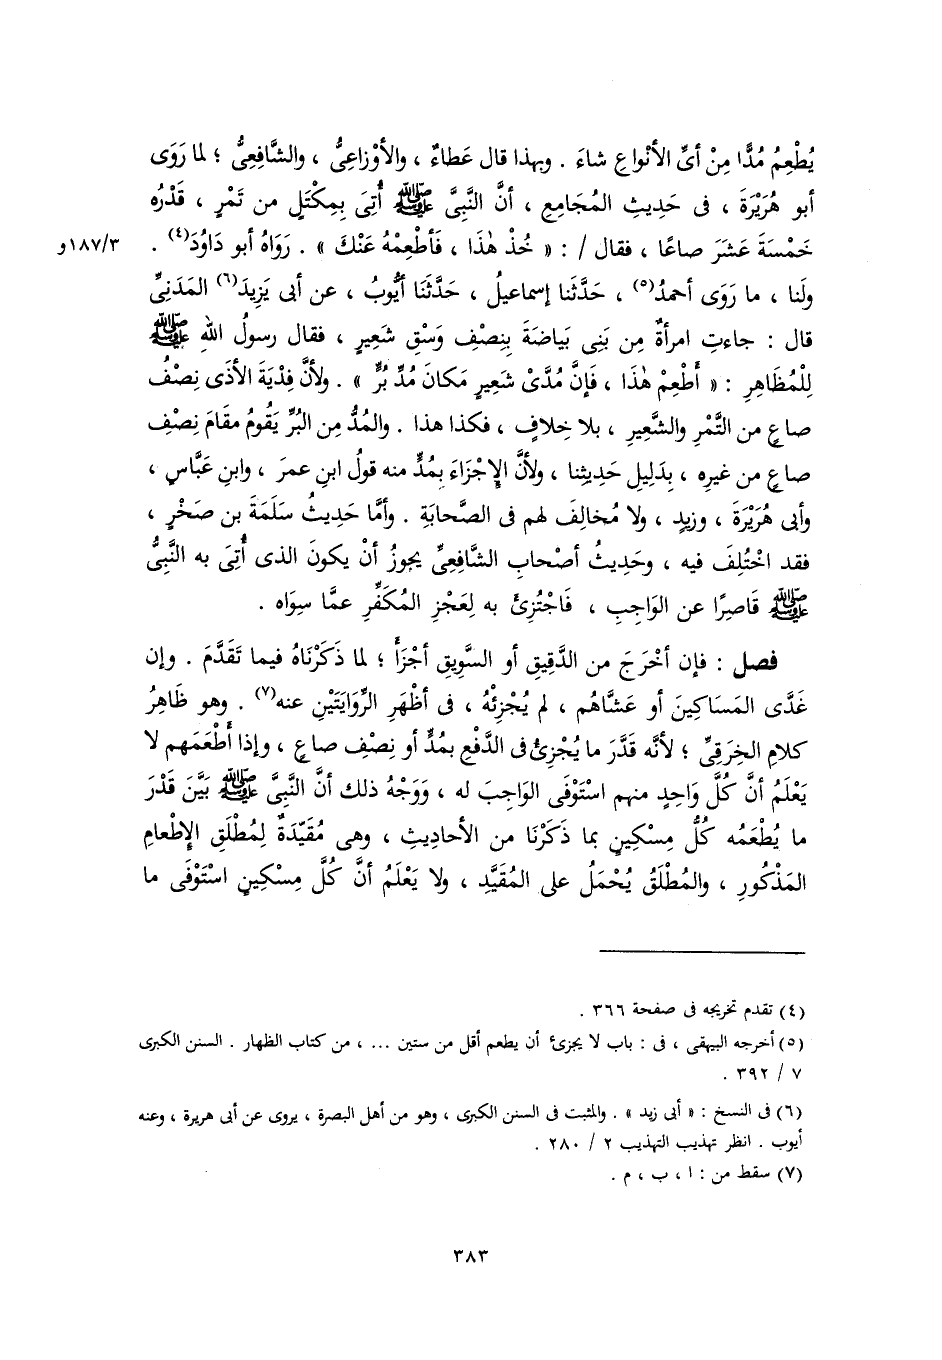 يُطْعِمُ مُدًّا مِنْ أىِّ الأنْواعِ شاءَ . وبهذا قال عَطاءٌ ، والأوْزاعِىُّ ، والشَّافِعِىُّ ؛ لما رَوَى
أبو هُرَيْرَةَ ، فى حَدِيثِ المُجَامِعِ ، أنَّ النَّبِىَّ ﷺ أُتِىَ بِمِكْتَلٍ من تَمْرٍ ، قَدْرُه
خَمْسَةَ عَشَرَ صاعًا ، فقال / : « خُذْ هٰذَا ، فَأطْعِمْهُ عَنْكَ » . رَوَاهُ أبو دَاوُدَ(٤) . ١٨٧/٣و
ولَنا ، ما رَوَى أحمدُ(٥) ، حَدَّثَنا إسماعيلُ ، حَدَّثَنَا أيُّوبُ ، عن أبى يَزِيدَ(٦) المَدَنِىِّ
قال : جاءتِ امرأةٌ مِن بَنِى بَياضَةَ بِنِصْفِ وَسْقِ شَعِيرٍ ، فقال رسولُ اللهِ ﷺ
لِلْمُظَاهِرِ : « أَطْعِمْ هٰذَا ، فَإنَّ مُدَّىْ شَعِيرٍ مَكَانَ مُدِّ بُرٍّ » . ولأنَّ فِدْيَةَ الأذَى نِصْفُ
صاعٍ من التَّمْرِ والشَّعِيرِ ، بلا خِلافٍ ، فكذا هذا . والمُدُّ مِن البُرِّ يَقُومُ مقَامَ نِصْفِ
صاعٍ من غيرِه ، بِدَلِيلِ حَدِيثِنا ، ولأنَّ الإِجْزَاءَ بِمُدٍّ منه قولُ ابنِ عمرَ ، وابنِ عَبَّاسٍ ،
وأبى هُرَيْرَةَ ، وزيدٍ ، ولا مُخالِفَ لهم فى الصَّحابَةِ . وأمَّا حَدِيثُ سَلَمَةَ بن صَخْرٍ ،
فقد اخْتُلِفَ فيه ، وحَدِيثُ أصْحابِ الشَّافِعِىِّ يجوزُ أنْ يكونَ الذى أُتِىَ به النَّبِىُّ
ﷺ قَاصِرًا عن الوَاجِبِ ، فَاجْتُزِئَ به لِعَجْزِ المُكَفِّرِ عمَّا سِوَاه .
فصل : فإن أخْرَجَ من الدَّقِيقِ أو السَّوِيقِ أجْزَأَ ؛ لما ذَكَرْنَاهُ فيما تَقَدَّمَ . وإن
غَدَّى المَسَاكِينَ أو عَشَّاهُم ، لم يُجْزِئْهُ ، فى أظْهَرِ الرِّوَايَتَيْنِ عنه(٧) . وهو ظَاهِرُ
كلامِ الخِرَقِىِّ ؛ لأنَّه قَدَّرَ ما يُجْزِئُ فى الدَّفْعِ بمُدٍّ أو نِصْفِ صاعٍ ، وإذا أَطْعَمَهم لا
يَعْلَمُ أنَّ كُلَّ وَاحِدٍ منهم اسْتَوْفَى الوَاجِبَ له ، وَوَجْهُ ذلك أنَّ النَّبِىَّ ﷺ بَيَّنَ قَدْرَ
ما يُطْعَمُه كُلُّ مِسْكِينٍ بما ذَكَرْنَا من الأحادِيثِ ، وهى مُقَيِّدَةٌ لِمُطْلَقِ الإِطْعامِ
المَذْكُورِ ، والمُطْلَقُ يُحْمَلُ على المُقَيَّدِ ، ولا يَعْلَمُ أنَّ كُلَّ مِسْكِينٍ اسْتَوْفَى ما
(٤) تقدم تخريجه فى صفحة ٣٦٦ .
(٥) أخرجه البيهقى ، فى : باب لا يجزئ أن يطعم أقل من ستين ... ، من كتاب الظهار . السنن الكبرى
٧ / ٣٩٢ .
(٦) فى النسخ : « أبى زيد » . والمثبت فى السنن الكبرى ، وهو من أهل البصرة ، يروى عن أبى هريرة ، وعنه
أيوب . انظر تهذيب التهذيب ٢ / ٢٨٠ .
(٧) سقط من : ا ، ب ، م .
٣٨٣